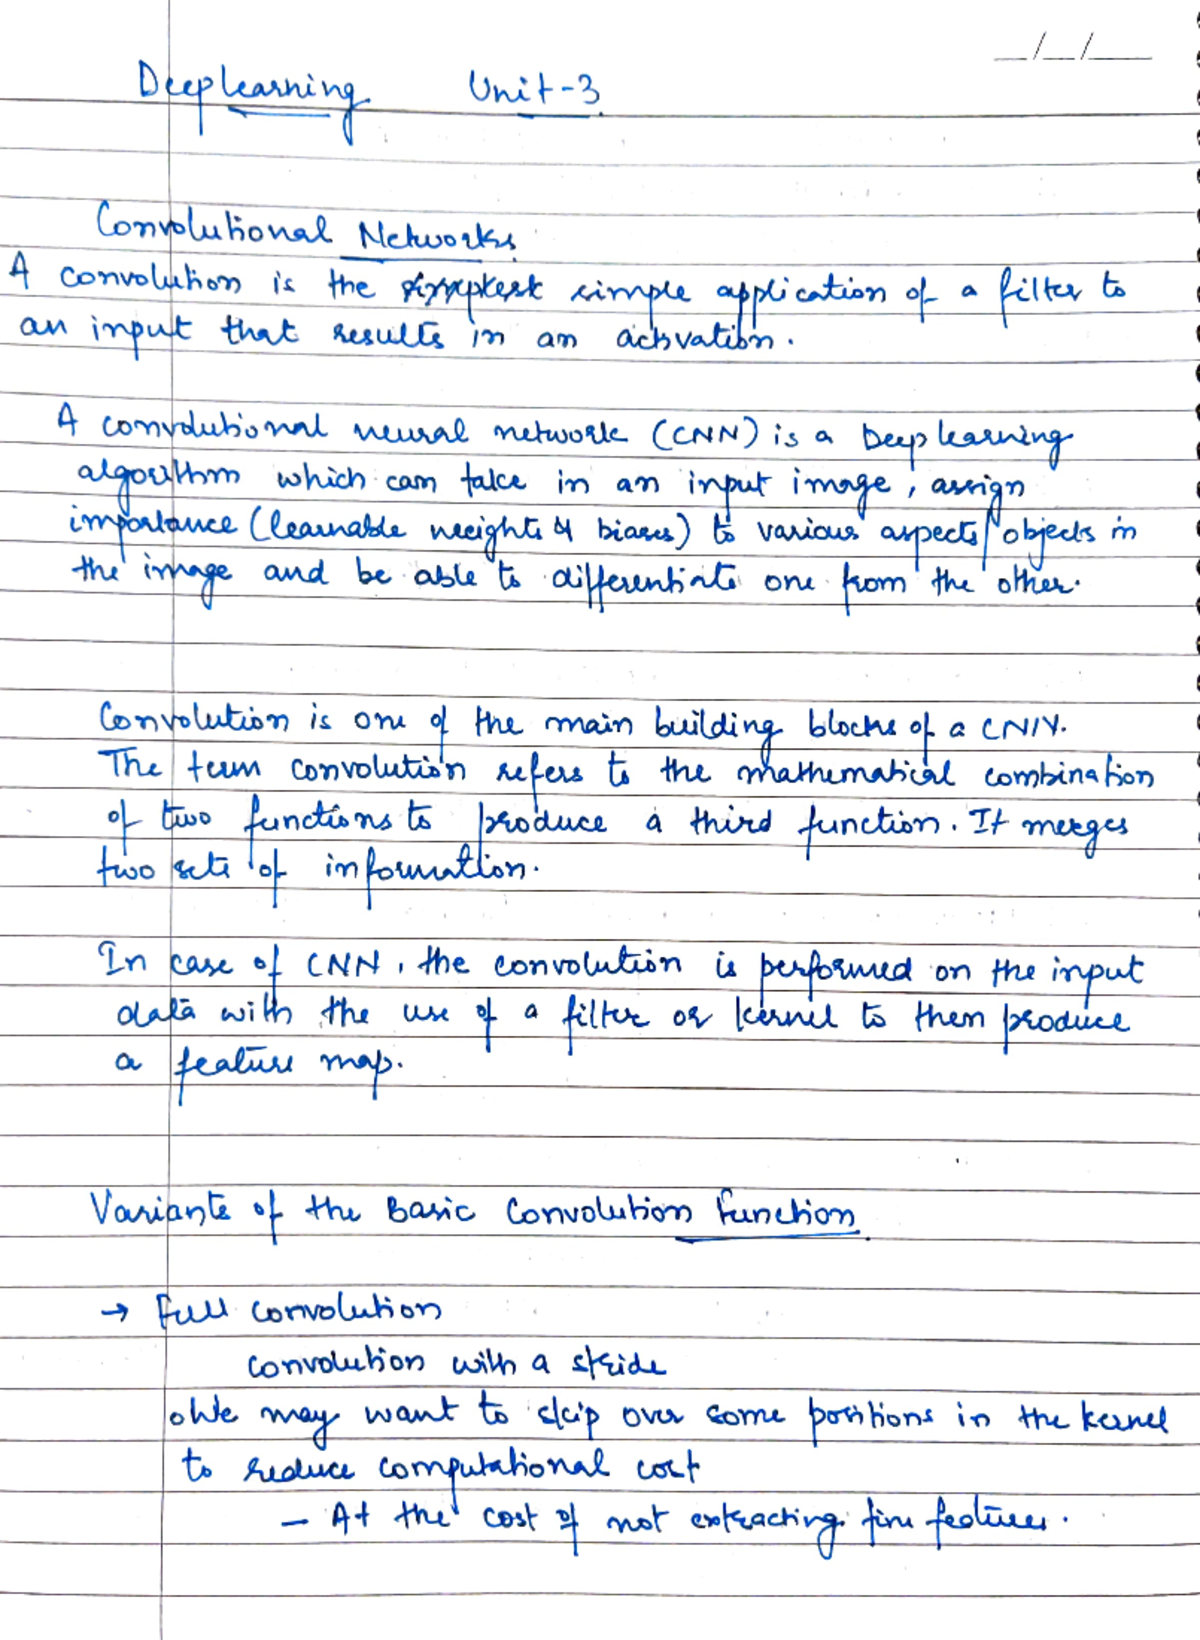 __/__/____
Deeplearning Unit-3.
Convolutional Networks.
A convolution is the simple application of a filter to
an input that results in an activation.
A convolutional neural network (CNN) is a Deep learning
algorithm which can take in an input image, assign
importance (learnable weights & biases) to various aspects/objects in
the image and be able to differentiate one from the other.
Convolution is one of the main building blocks of a CNN.
The term convolution refers to the mathematical combination
of two functions to produce a third function. It merges
two sets of information.
In case of CNN, the convolution is performed on the input
data with the use of a filter or kernel to then produce
a feature map.
Variants of the Basic Convolution Function.
→ Full convolution
convolution with a stride
o We may want to skip over some positions in the kernel
to reduce computational cost
- At the cost of not extracting fine features.